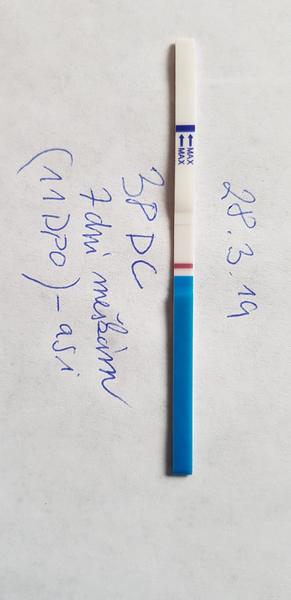 28.3.19
MAX
MAX
38 DC
7 dní meškám
(11 DPO) - asi